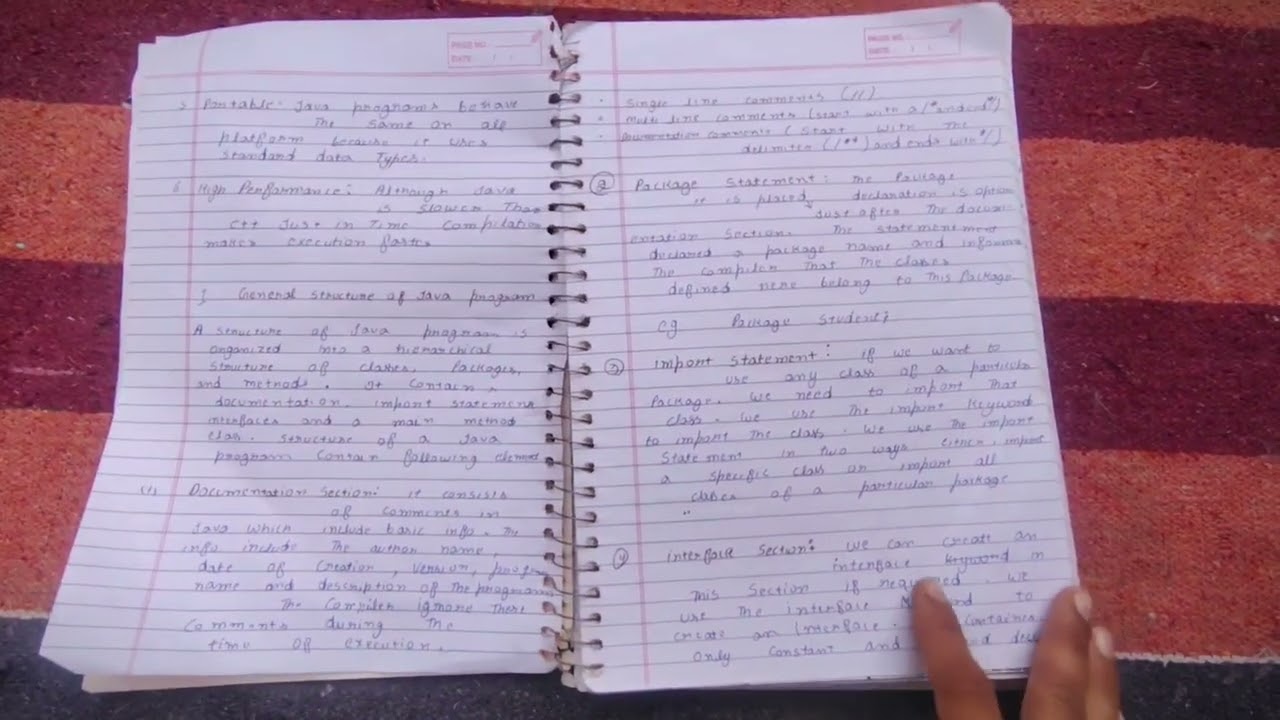 PAGE NO.
DATE
5 Portable: Java programs behave
The same on all
platform because it uses
standard data Types.
6 High Performance: Although Java
is slower Than
C++ Just in Time Compilation
makes execution faster
General structure of Java program
A structure of Java program is
organized into a hierarchical
structure of classes, Packages,
and methods. It contains
documentation, import statement
interfaces and a main method
class. structure of a Java
program contain following element
(1) Documentation Section: it consists
of comments in
Java which include basic info. The
info include The author name,
date of creation, version, program
name and description of the program
The compiler ignore These
comments during The
time of execution.
PAGE NO.
DATE
• Single line comments (//)
• Multi line comments (start with a /* and end */)
• Documentation comments (start with The
delimiter (/**) and ends with */)
② Package Statement: The Package
it is placed declaration is option
Just after The docum-
entation Section. The statement
declared a package name and informs
The compiler That The classes
defined here belong to This Package
eg Package Student;
③ import statement: if we want to
use any class of a particular
Package. we need to import That
class. we use The import keyword
to import The class. we use The import
Statement in two ways either, import
a specific class or import all
classes of a particular package
④ interface Section: we can create an
interface keyword in
This Section if required. we
use The interface to
create an interface. contains
only constant and